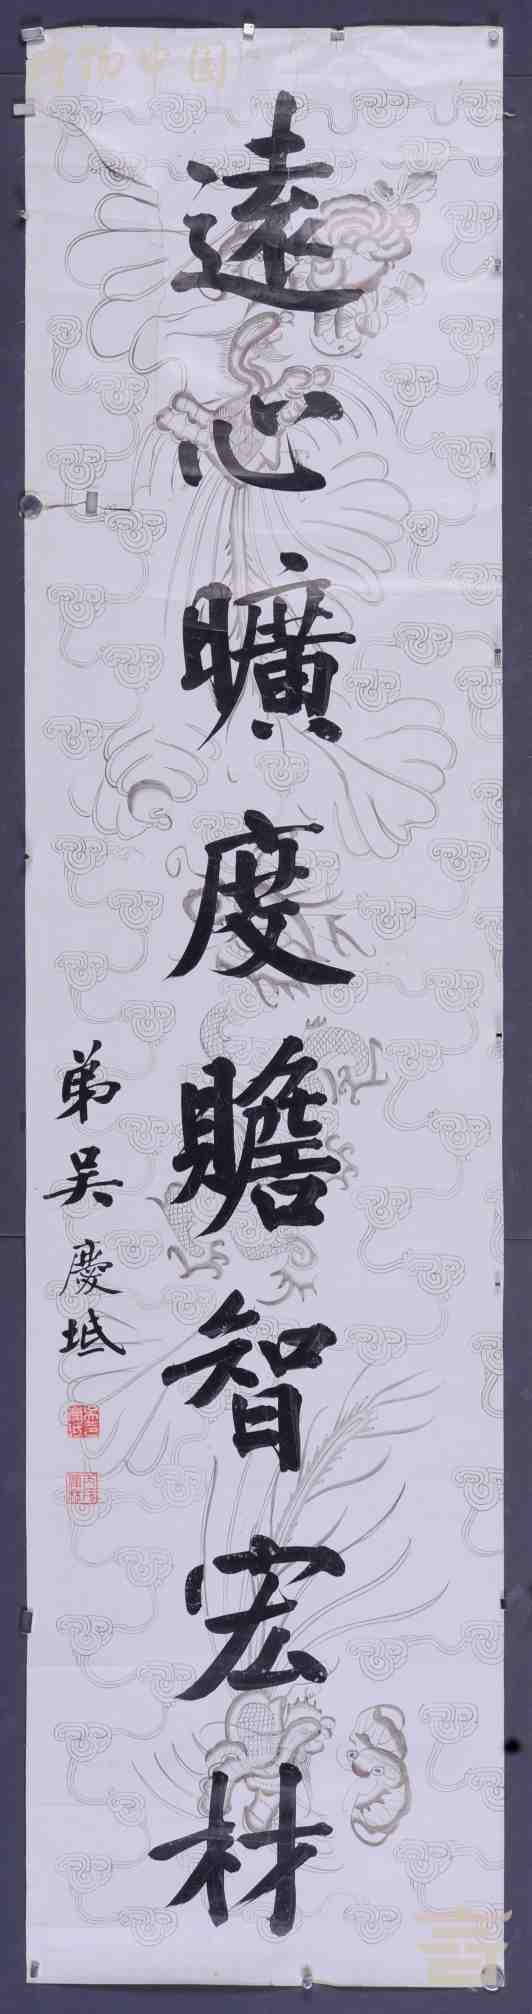 博物中国
遠心曠度贍智宏材
弟吳慶坻